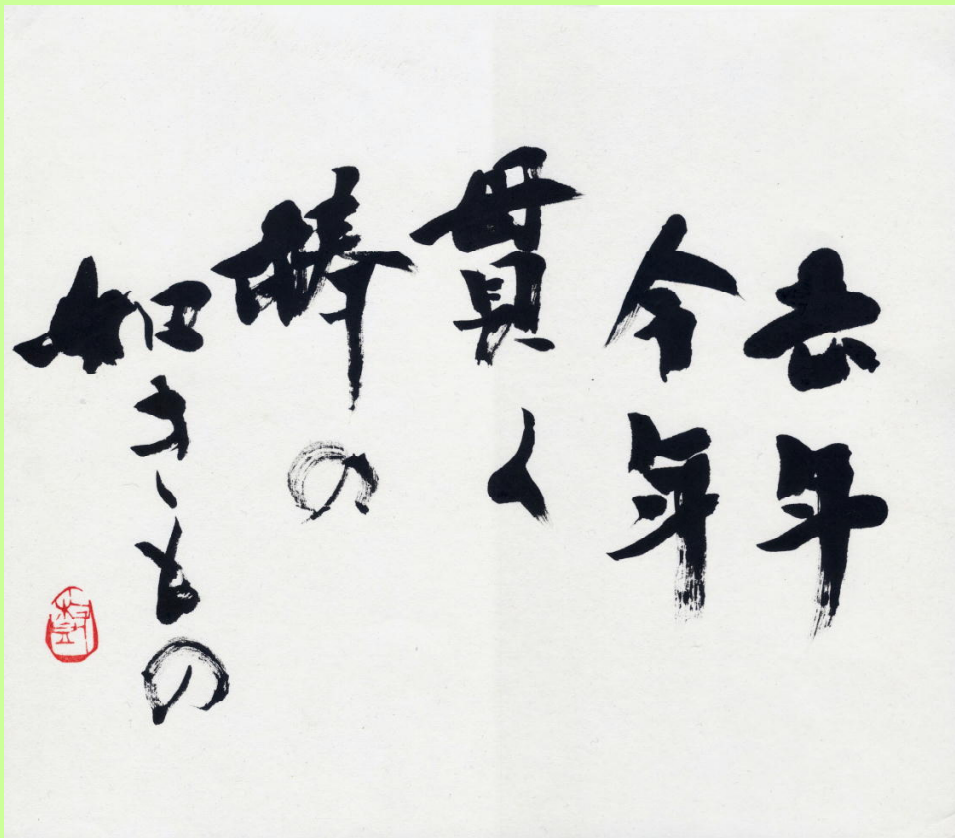 去年
今年
貫く
棒の
如きもの